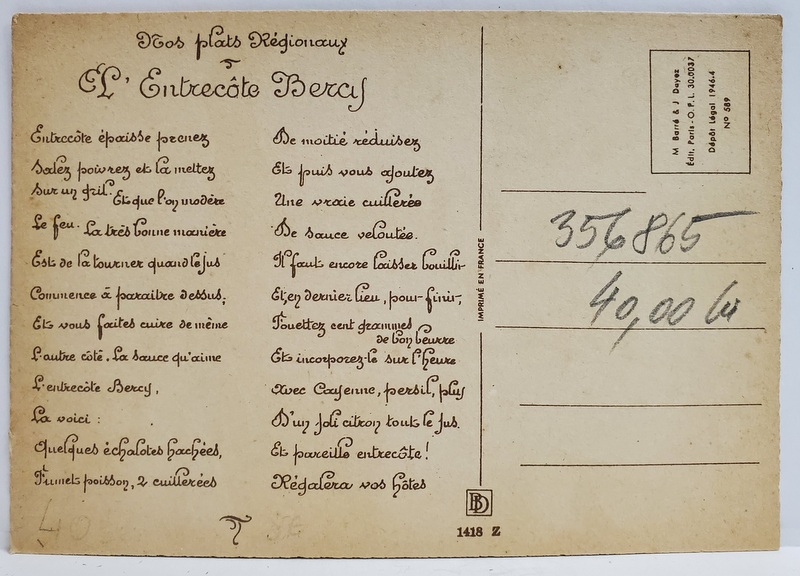 Nos plats Régionaux
L'Entrecôte Bercy
Entrecôte épaisse prenez
Salez poivrez et la mettez
Sur un gril. Et que l'on modère
Le feu. La très bonne manière
Est de la tourner quand le jus
Commence à paraitre dessus,
Et vous faites cuire de même
L'autre côté. La sauce qu'aime
L'entrecôte Bercy,
La voici :
Quelques échalotes hachées,
Fumet poisson, 2 cuillerées
De moitié réduisez
Et puis vous ajoutez
Une vraie cuillerée
De sauce veloutée.
Il faut encore laisser bouillir
Et en dernier lieu, pour finir,
Fouettez cent grammes
de bon beurre
Et incorporez-le sur l'heure
Avec Cayenne, persil, plus
D'un joli citron tout le jus.
Et pareille entrecôte !
Régalera vos hôtes
IMPRIMÉ EN FRANCE
BD
1418 Z
M Barré & J Dayez
Édit. Paris - O.P.L. 30.0037
Dépôt Légal 1946-4
No 589
356865
40,00 lei
40